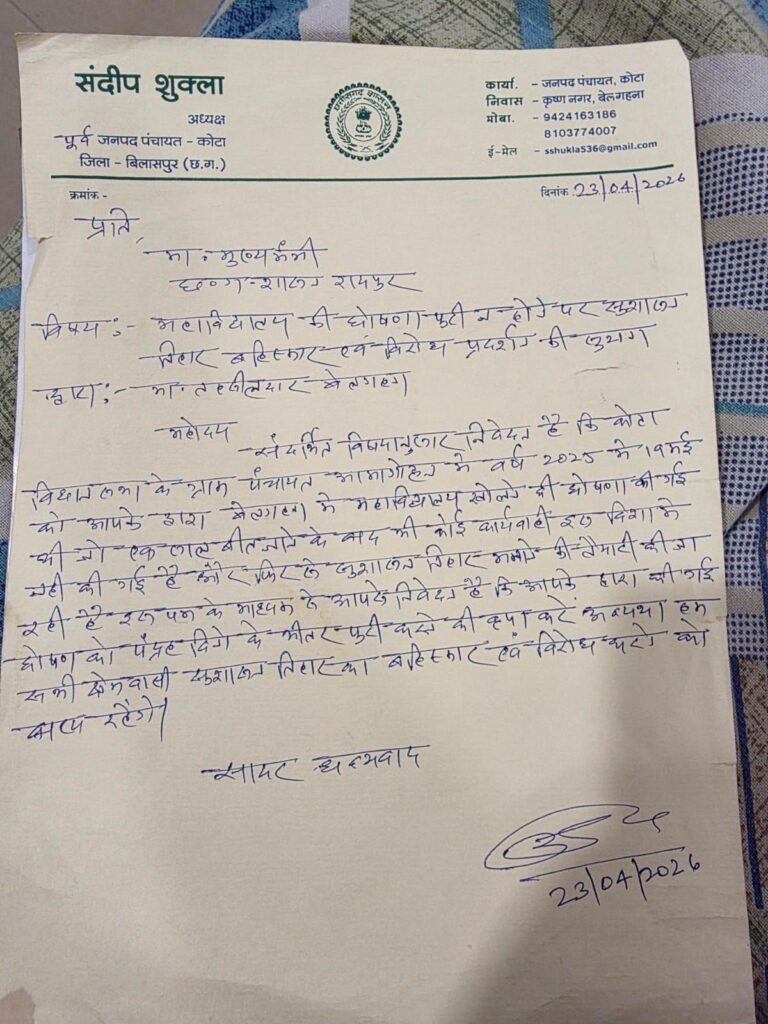 संदीप शुक्ला
अध्यक्ष
पूर्व जनपद पंचायत - कोटा
जिला - बिलासपुर (छ.ग.)
छत्तीसगढ़ शासन
कार्या. - जनपद पंचायत, कोटा
निवास - कृष्ण नगर, बेलगहना
मोबा. - 9424163186
8103774007
ई-मेल - sshukla536@gmail.com
क्रमांक -
दिनांक 23/04/2026
प्रति,
मा. मुख्यमंत्री
छ०ग० शासन रायपुर
विषय :- महाविद्यालय की घोषणा पुरी न होने पर सुशासन
तिहार बहिस्कार एवं विरोध प्रदर्शन की सुचना
द्वारा :- मा. तहसीलदार बेलगहना
महोदय
संदर्भित विषयानुसार निवेदन है कि कोटा
विधानसभा के ग्राम पंचायत आमागोहन मे वर्ष 2025 मे 19 मई
को आपके द्वारा बेलगहना मे महाविद्यालय खोलने की घोषणा की गई
थी जो एक साल बीत जाने के बाद भी कोई कार्यवाही इस दिशा मे
नही की गई है और फिर से सुशासन तिहार मनाने की तैयारी की जा
रही है इस पत्र के माध्यम से आपसे निवेदन है कि आपके द्वारा की गई
घोषणा को पंद्रह दिनो के भीतर पुरी करने की कृपा करें अन्यथा हम
सभी क्षेत्रवासी सुशासन तिहार का बहिस्कार एवं विरोध करने को
बाध्य रहेंगे।
सादर धन्यवाद
23/04/2026